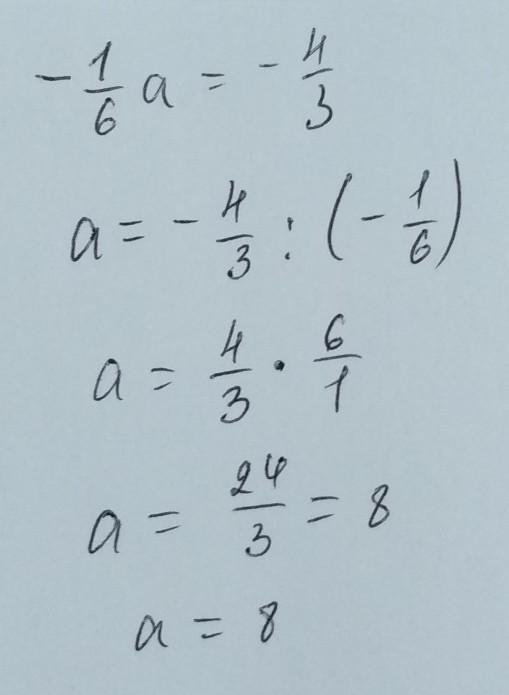 -1/6 a = -4/3
a = -4/3 : (-1/6)
a = 4/3 · 6/1
a = 24/3 = 8
a = 8